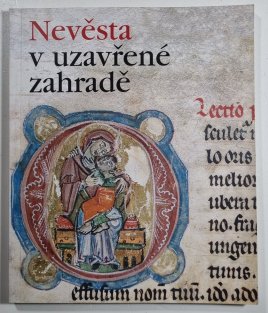 Nevěsta
v uzavřené
zahradě
Lectio p
scület
lo oris
melior
ubera
no. fra
ungen
tunis.
effusum nom tuū. ido. ado